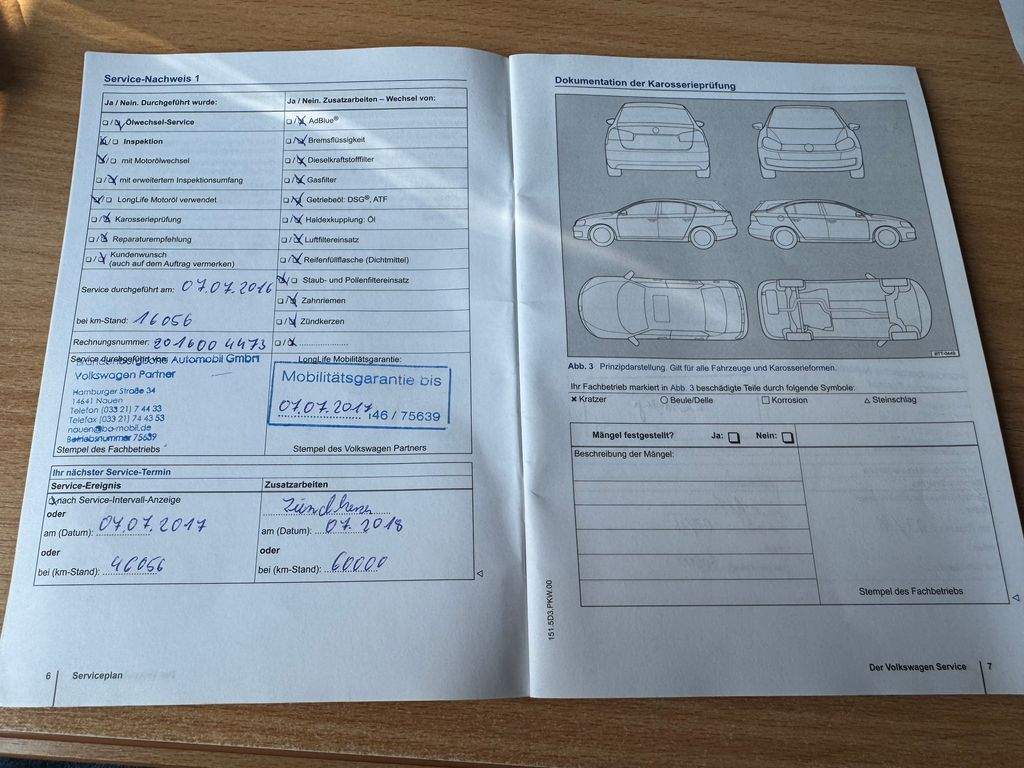 Service-Nachweis 1
Ja / Nein. Durchgeführt wurde:
Ja / Nein. Zusatzarbeiten – Wechsel von:
Ölwechsel-Service
AdBlue®
Inspektion
Bremsflüssigkeit
mit Motorölwechsel
Dieselkraftstofffilter
mit erweitertem Inspektionsumfang
Gasfilter
LongLife Motoröl verwendet
Getriebeöl: DSG®, ATF
Karosserieprüfung
Haldexkupplung: Öl
Reparaturempfehlung
Luftfiltereinsatz
Kundenwunsch
(auch auf dem Auftrag vermerken)
Reifenfüllflasche (Dichtmittel)
Staub- und Pollenfiltereinsatz
Service durchgeführt am: 07.07.2016
Zahnriemen
bei km-Stand: 16056
Zündkerzen
Rechnungsnummer: 201600 4473
Service durchgeführt von:
Automobil GmbH
Volkswagen Partner
Hamburger Straße 34
14641 Nauen
Telefon (033 21) 7 44 33
Telefax (033 21) 74 43 53
nauen@ba-mobil.de
Betriebsnummer 75639
Stempel des Fachbetriebs
LongLife Mobilitätsgarantie:
Mobilitätsgarantie bis
07.07.2017 146 / 75639
Stempel des Volkswagen Partners
Ihr nächster Service-Termin
Service-Ereignis
Zusatzarbeiten
nach Service-Intervall-Anzeige
oder
am (Datum): 07.07.2017
oder
bei (km-Stand): 46056
am (Datum): 07.2018
oder
bei (km-Stand): 60000
6 Serviceplan
Dokumentation der Karosserieprüfung
Abb. 3 Prinzipdarstellung. Gilt für alle Fahrzeuge und Karosserieformen.
Ihr Fachbetrieb markiert in Abb. 3 beschädigte Teile durch folgende Symbole:
Kratzer
Beule/Delle
Korrosion
Steinschlag
Mängel festgestellt? Ja: Nein:
Beschreibung der Mängel:
Stempel des Fachbetriebs
151.5D3.PKW.00
Der Volkswagen Service 7